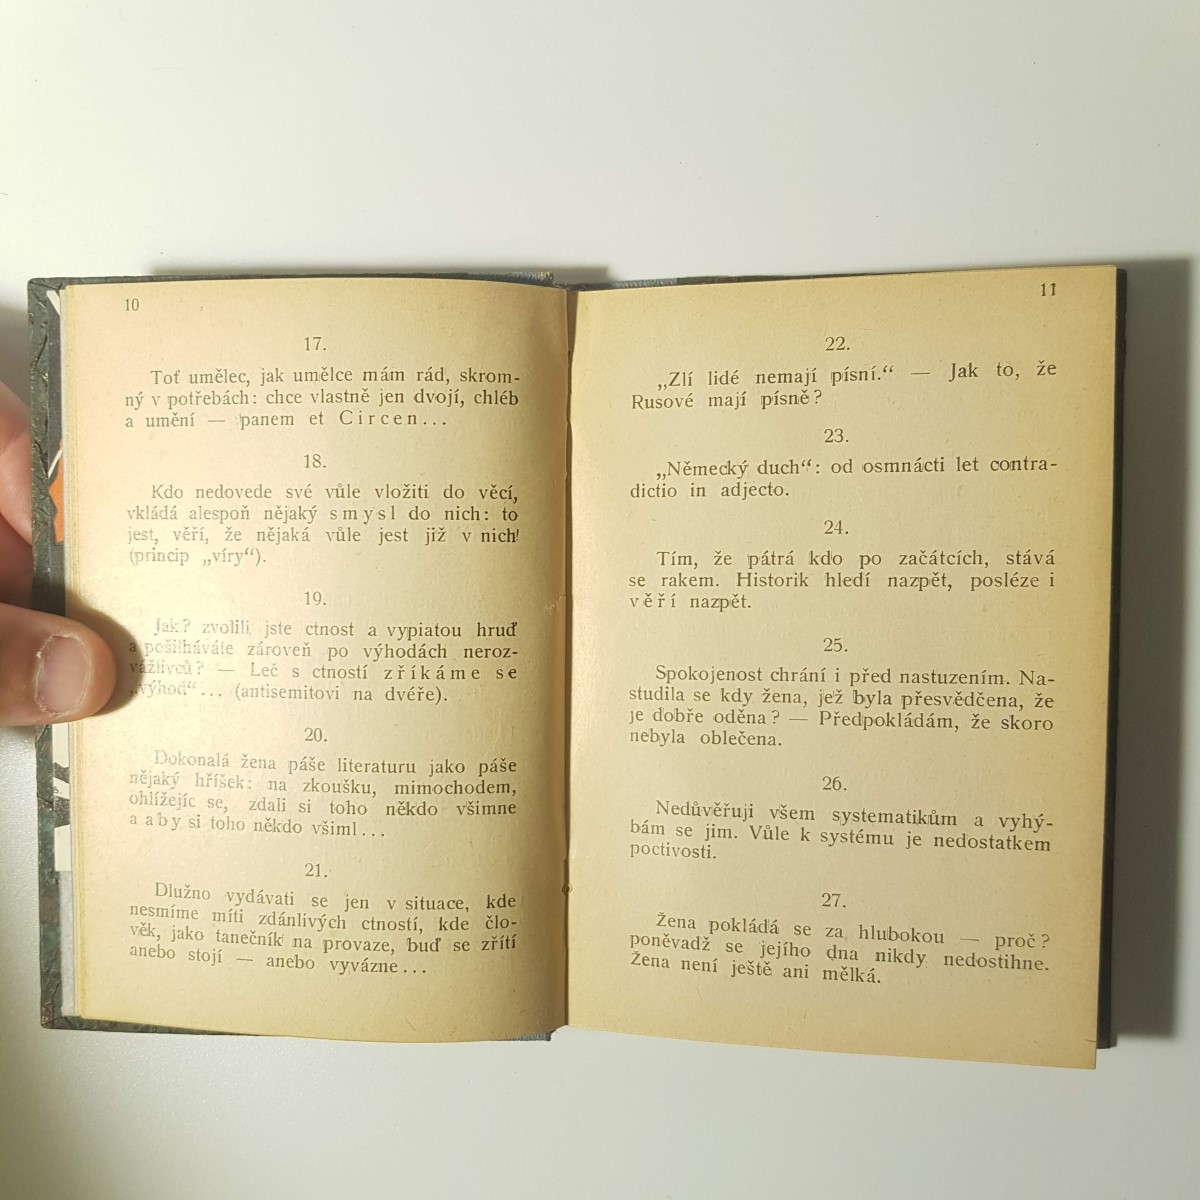 10
17.
Toť umělec, jak umělce mám rád, skrom-
ný v potřebách: chce vlastně jen dvojí, chléb
a umění — panem et Circen...
18.
Kdo nedovede své vůle vložiti do věcí,
vkládá alespoň nějaký smysl do nich: to
jest, věří, že nějaká vůle jest již v nich!
(princip „víry“).
19.
Jak? zvolili jste ctnost a vypiatou hruď
a pošilháváte zároveň po výhodách neroz-
vážlivců? — Leč s ctností zříkáme se
„výhod“... (antisemitovi na dvéře).
20.
Dokonalá žena páše literaturu jako páše
nějaký hříšek: na zkoušku, mimochodem,
ohlížejíc se, zdali si toho někdo všimne
a aby si toho někdo všiml...
21.
Dlužno vydávati se jen v situace, kde
nesmíme míti zdánlivých ctností, kde člo-
věk, jako tanečník na provaze, buď se zřítí
anebo stojí — anebo vyvázne...
11
22.
„Zlí lidé nemají písní.“ — Jak to, že
Rusové mají písně?
23.
„Německý duch“: od osmnácti let contra-
dictio in adjecto.
24.
Tím, že pátrá kdo po začátcích, stává
se rakem. Historik hledí nazpět, posléze i
věří nazpět.
25.
Spokojenost chrání i před nastuzením. Na-
studila se kdy žena, jež byla přesvědčena, že
je dobře oděna? — Předpokládám, že skoro
nebyla oblečena.
26.
Nedůvěřuji všem systematikům a vyhý-
bám se jim. Vůle k systému je nedostatkem
poctivosti.
27.
Žena pokládá se za hlubokou — proč?
poněvadž se jejího dna nikdy nedostihne.
Žena není ještě ani mělká.